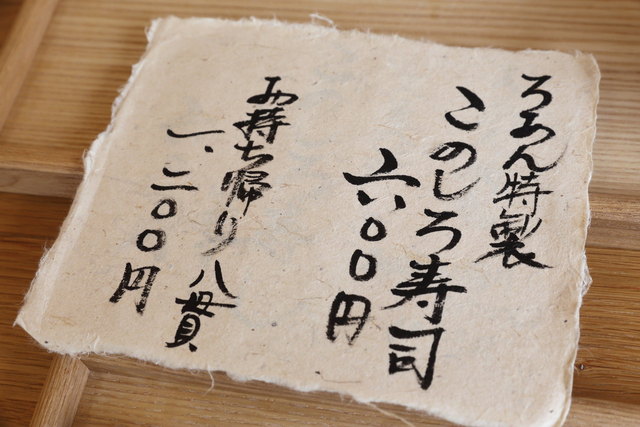 ろあん特製
このしろ寿司
六〇〇円
お持ち帰り八貫
一、二〇〇円